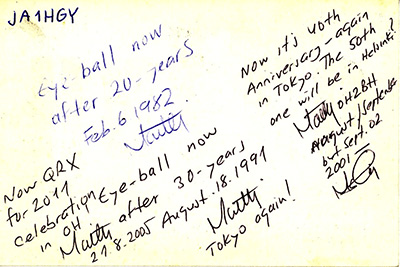 JA1HGY
Eye-ball now
after 20-years
Feb. 6 1982
Martti
Now it's 40th
Anniversary-again
in Tokyo. The 50th
one will be in Helsinki!
Martti OH2BH
August/September
but Sept. 02
2001
Eye-ball now
after 30-years
August. 18. 1991
Martti
Tokyo again!
Now QRX
for 2011
celebration
in OH
Martti
21.8.2005